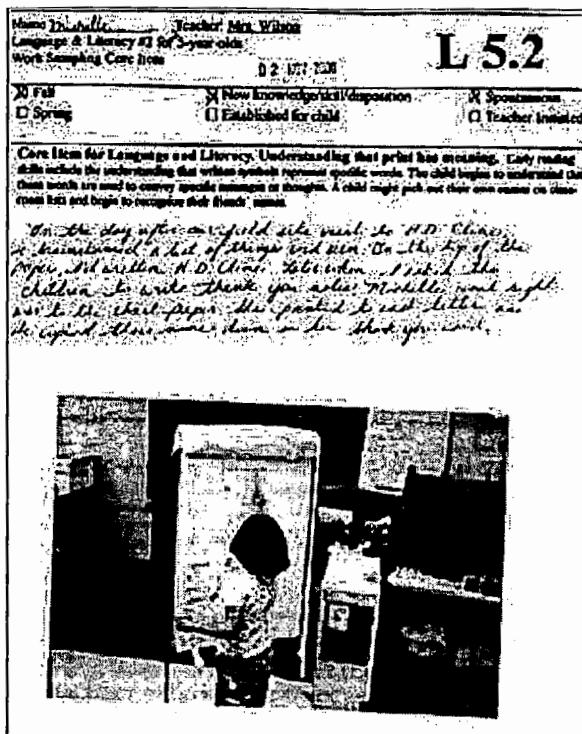 Name Michelle Teacher Mrs. Wilson
Language & Literacy #2 for 5-year-olds
Work Sampling Core Item
L 5.2
Fall
Spring
New knowledge/skill/disposition
Established for child
Spontaneous
Teacher Initiated
Core Item for Language and Literacy, Understanding that print has meaning. Early reading
skills include the understanding that written symbols represent specific words. The child begins to understand that
these words are used to convey specific messages or thoughts. A child might pick out their own names on class-
room lists and begin to recognize their friends' names.
On the day after our field site visit to H.D. Clinic,
brainstormed a list of things we'd seen. On the top of the
paper, I'd written H.D. Clinic. Later when I asked the
children to write thank you notes Michelle went right
out to the chart paper. She pointed to each letter as
she copied down in her thank you card.